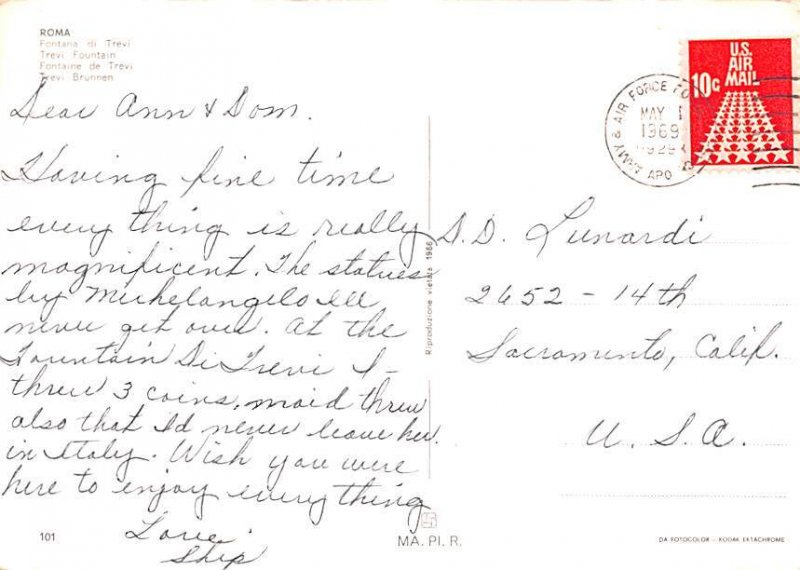 ROMA
Fontana di Trevi
Trevi Fountain
Fontaine de Trevi
Trevi Brunnen
Dear Ann & Dom.
Having fine time
every thing is really
magnificent. The statues
by Michelangelo Ill
never get over. At the
Fountain Di Trevi I-
threw 3 coins, maid threw
also that I'd never leave her
in Italy. Wish you were
here to enjoy everything
Love
Skip
101
Riproduzione vietata 1966
MA. PI. R.
U.S.
AIR
MAIL
10c
ARMY & AIR FORCE
MAY 1
1969
APO
S. D. Lunardi
2652 - 14th
Sacramento, Calif.
U. S. A.
DA FOTOCOLOR - KODAK EKTACHROME